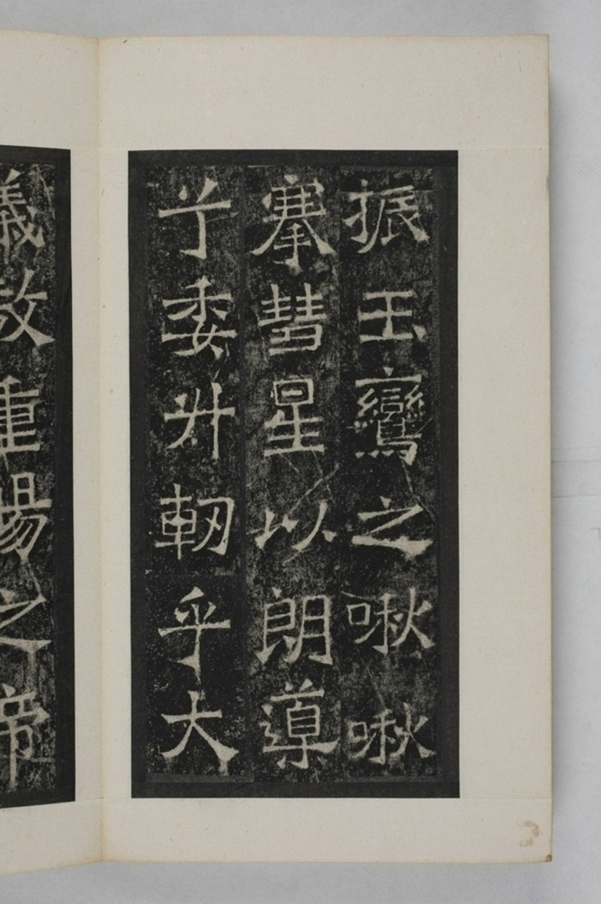 振玉鸞之啾啾
搴彗星以朗導
兮委升軔乎大
儀重陽之帝